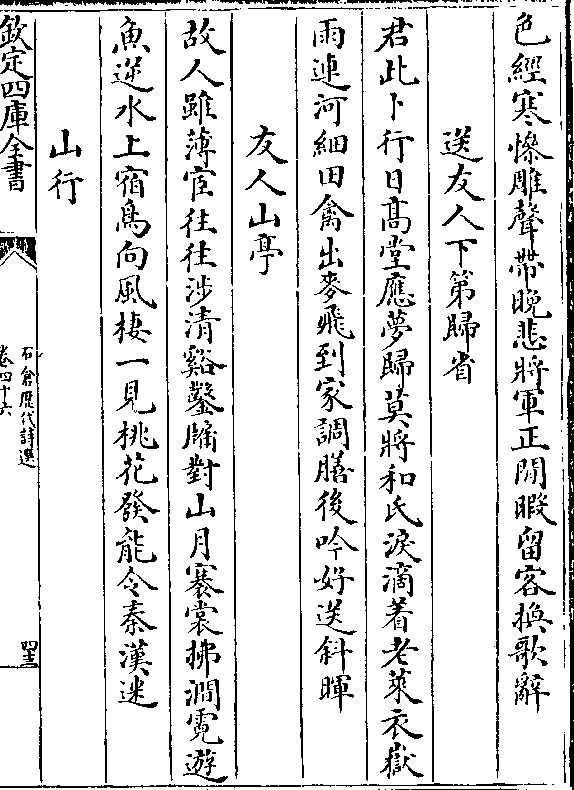 色經寒慘雕聲帶晚悲將軍正閒暇留客換歌辭
送友人下第歸省
君此卜行日高堂應夢歸莫將和氏淚滴着老萊衣嶽
雨連河細田禽出麥飛到家調膳後吟好送斜暉
友人山亭
故人雖薄宦往往涉清谿鑿牖對山月褰裳拂澗霓遊
魚逆水上宿鳥向風棲一見桃花發能令秦漢迷
山行
欽定四庫全書
石倉歷代詩選
卷四十六